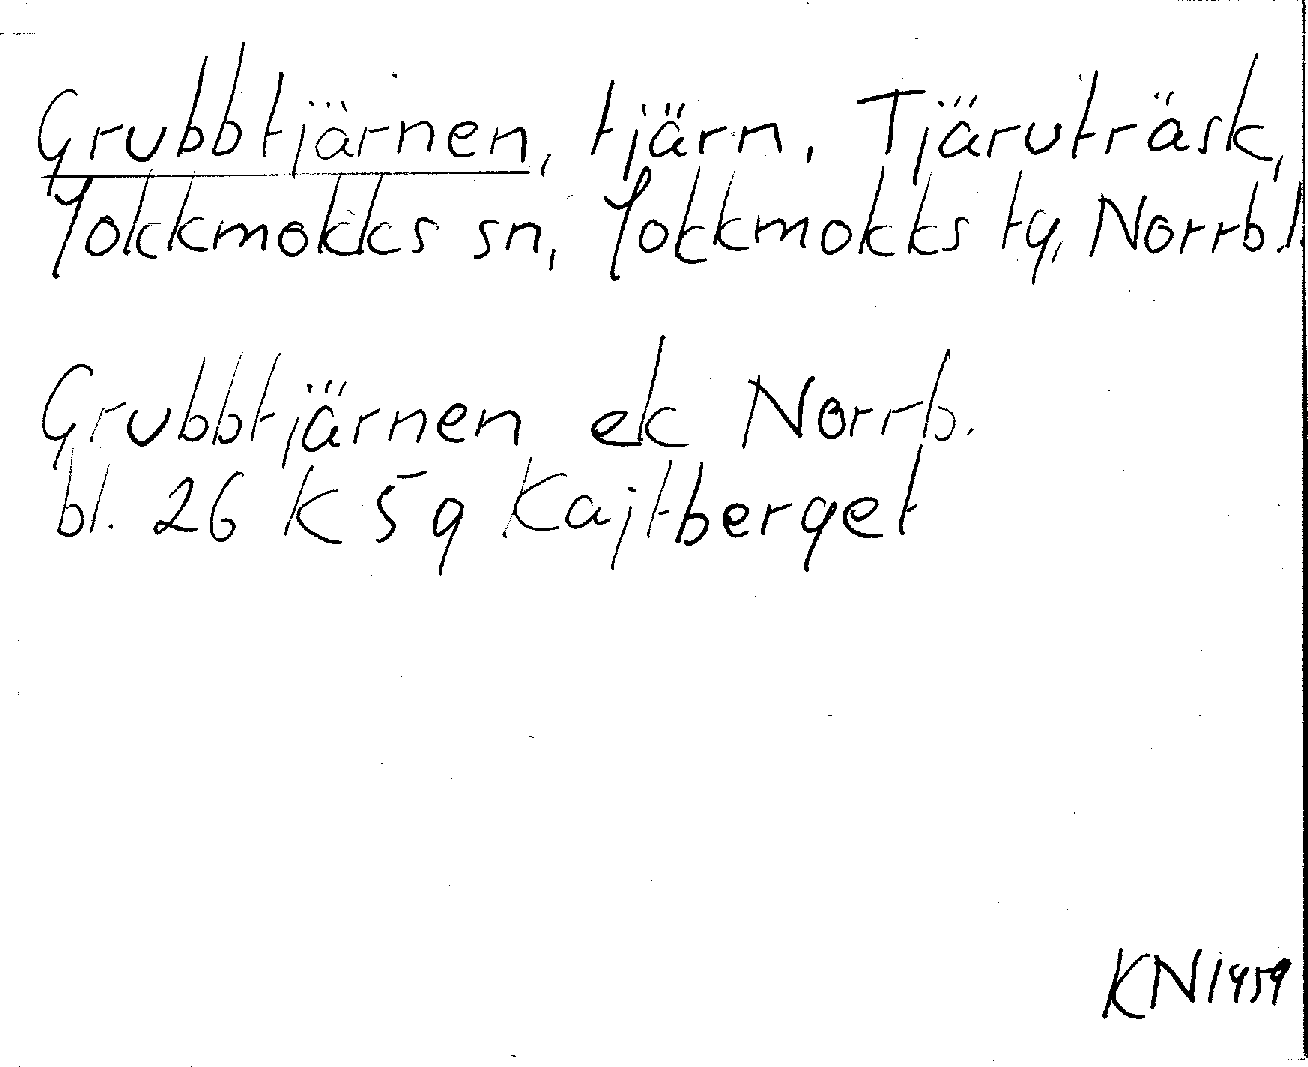 Grubbtjärnen, tjärn, Tjäruträsk,
Jokkmokks sn, Jokkmokks tg, Norrb l.
Grubbtjärnen ek Norrb.
bl. 26 K 5 g Kajtberget
KN 1959